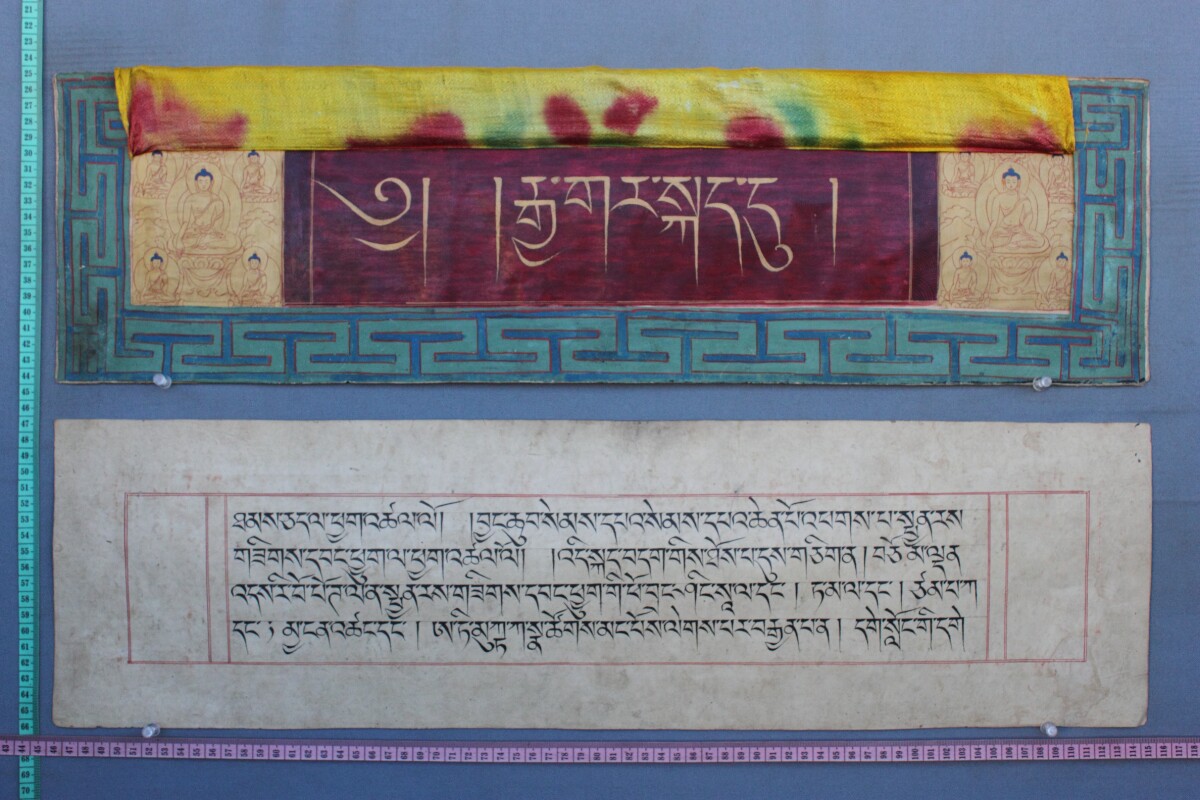 ༄། །རྒྱ་གར་སྐད་དུ །
ཐམས་ཅད་ལ་ཕྱག་འཚལ་ལོ། །བྱང་ཆུབ་སེམས་དཔའ་སེམས་དཔའ་ཆེན་པོ་འཕགས་པ་སྤྱན་རས
གཟིགས་དབང་ཕྱུག་ལ་ཕྱག་འཚལ་ལོ།། །འདི་སྐད་བདག་གིས་ཐོས་པ་དུས་གཅིག་ན། བཅོམ་ལྡན
འདས་རི་བོ་པོ་ཏ་ལ་ན་སྤྱན་རས་གཟིགས་དབང་ཕྱུག་གི་ཕོ་བྲང་ཤིང་སཱ་ལ་དང་། ཏ་མ་ལ་དང་། ཙམ་པ་ཀ
དང་། མྱ་ངན་འཚང་དང་། ཨ་ཏི་མུ་ཀྟ་ཀ་སྣ་ཚོགས་མང་པོས་ལེགས་པར་བརྒྱན་པ་ན། དགེ་སློང་གི་དགེ